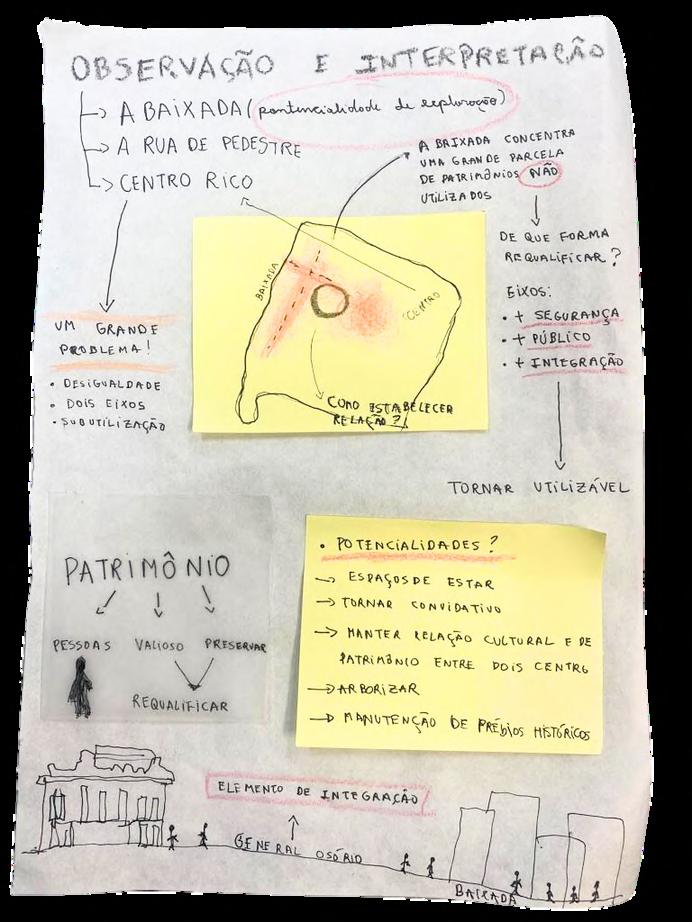 OBSERVAÇÃO E INTERPRETAÇÃO
A BAIXADA (pontencialidade de exploração)
A RUA DE PEDESTRE
CENTRO RICO
A BAIXADA CONCENTRA
UMA GRANDE PARCELA
DE PATRIMÔNIOS NÃO
UTILIZADOS
DE QUE FORMA
REQUALIFICAR?
EIXOS:
• + SEGURANÇA
• + PÚBLICO
• + INTEGRAÇÃO
TORNAR UTILIZÁVEL
UM GRANDE
PROBLEMA!
• DESIGUALDADE
• DOIS EIXOS
• SUBUTILIZAÇÃO
BAIXADA
CENTRO
COMO ESTABELECER
RELAÇÃO?
PATRIMÔNIO
PESSOAS VALIOSO PRESERVAR
REQUALIFICAR
• POTENCIALIDADES?
→ ESPAÇOS DE ESTAR
→ TORNAR CONVIDATIVO
→ MANTER RELAÇÃO CULTURAL E DE
PATRIMÔNIO ENTRE DOIS CENTRO
→ ARBORIZAR
→ MANUTENÇÃO DE PRÉDIOS HISTÓRICOS
ELEMENTO DE INTEGRAÇÃO
GENERAL OSÓRIO
BAIXADA